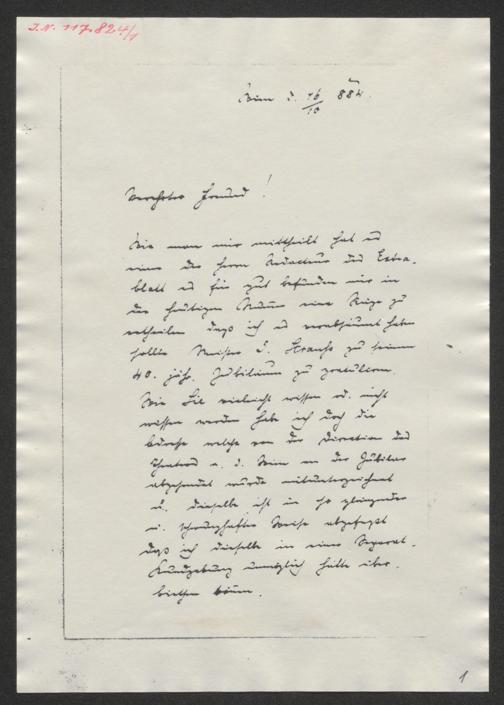 I.N. 117.824/1
Wien d. 16/10 884.
Verehrter Freund!
Wie man mir mittheilt hat es
einer der Herrn Redacteure des Extra-
blatt es für gut befunden mir in
der heutigen Numer eine Rüge zu
ertheilen daß ich es verabsäumt haben
sollte Meister J. Strauß zu seinem
40. jähr. Jubiläum zu gratuliren.
Wie Sie vielleicht wissen od. nicht
wissen werden habe ich doch die
Adresse welche von der Direction des
Theaters a. d. Wien an den Jubilar
abgesendet wurde mitunterzeichnet
u. dieselbe ist in so glänzender
u. schwunghafter Weise abgefaßt
daß ich dieselbe in einer Separat-
Kundgebung unmöglich hätte über-
biethen können.
1